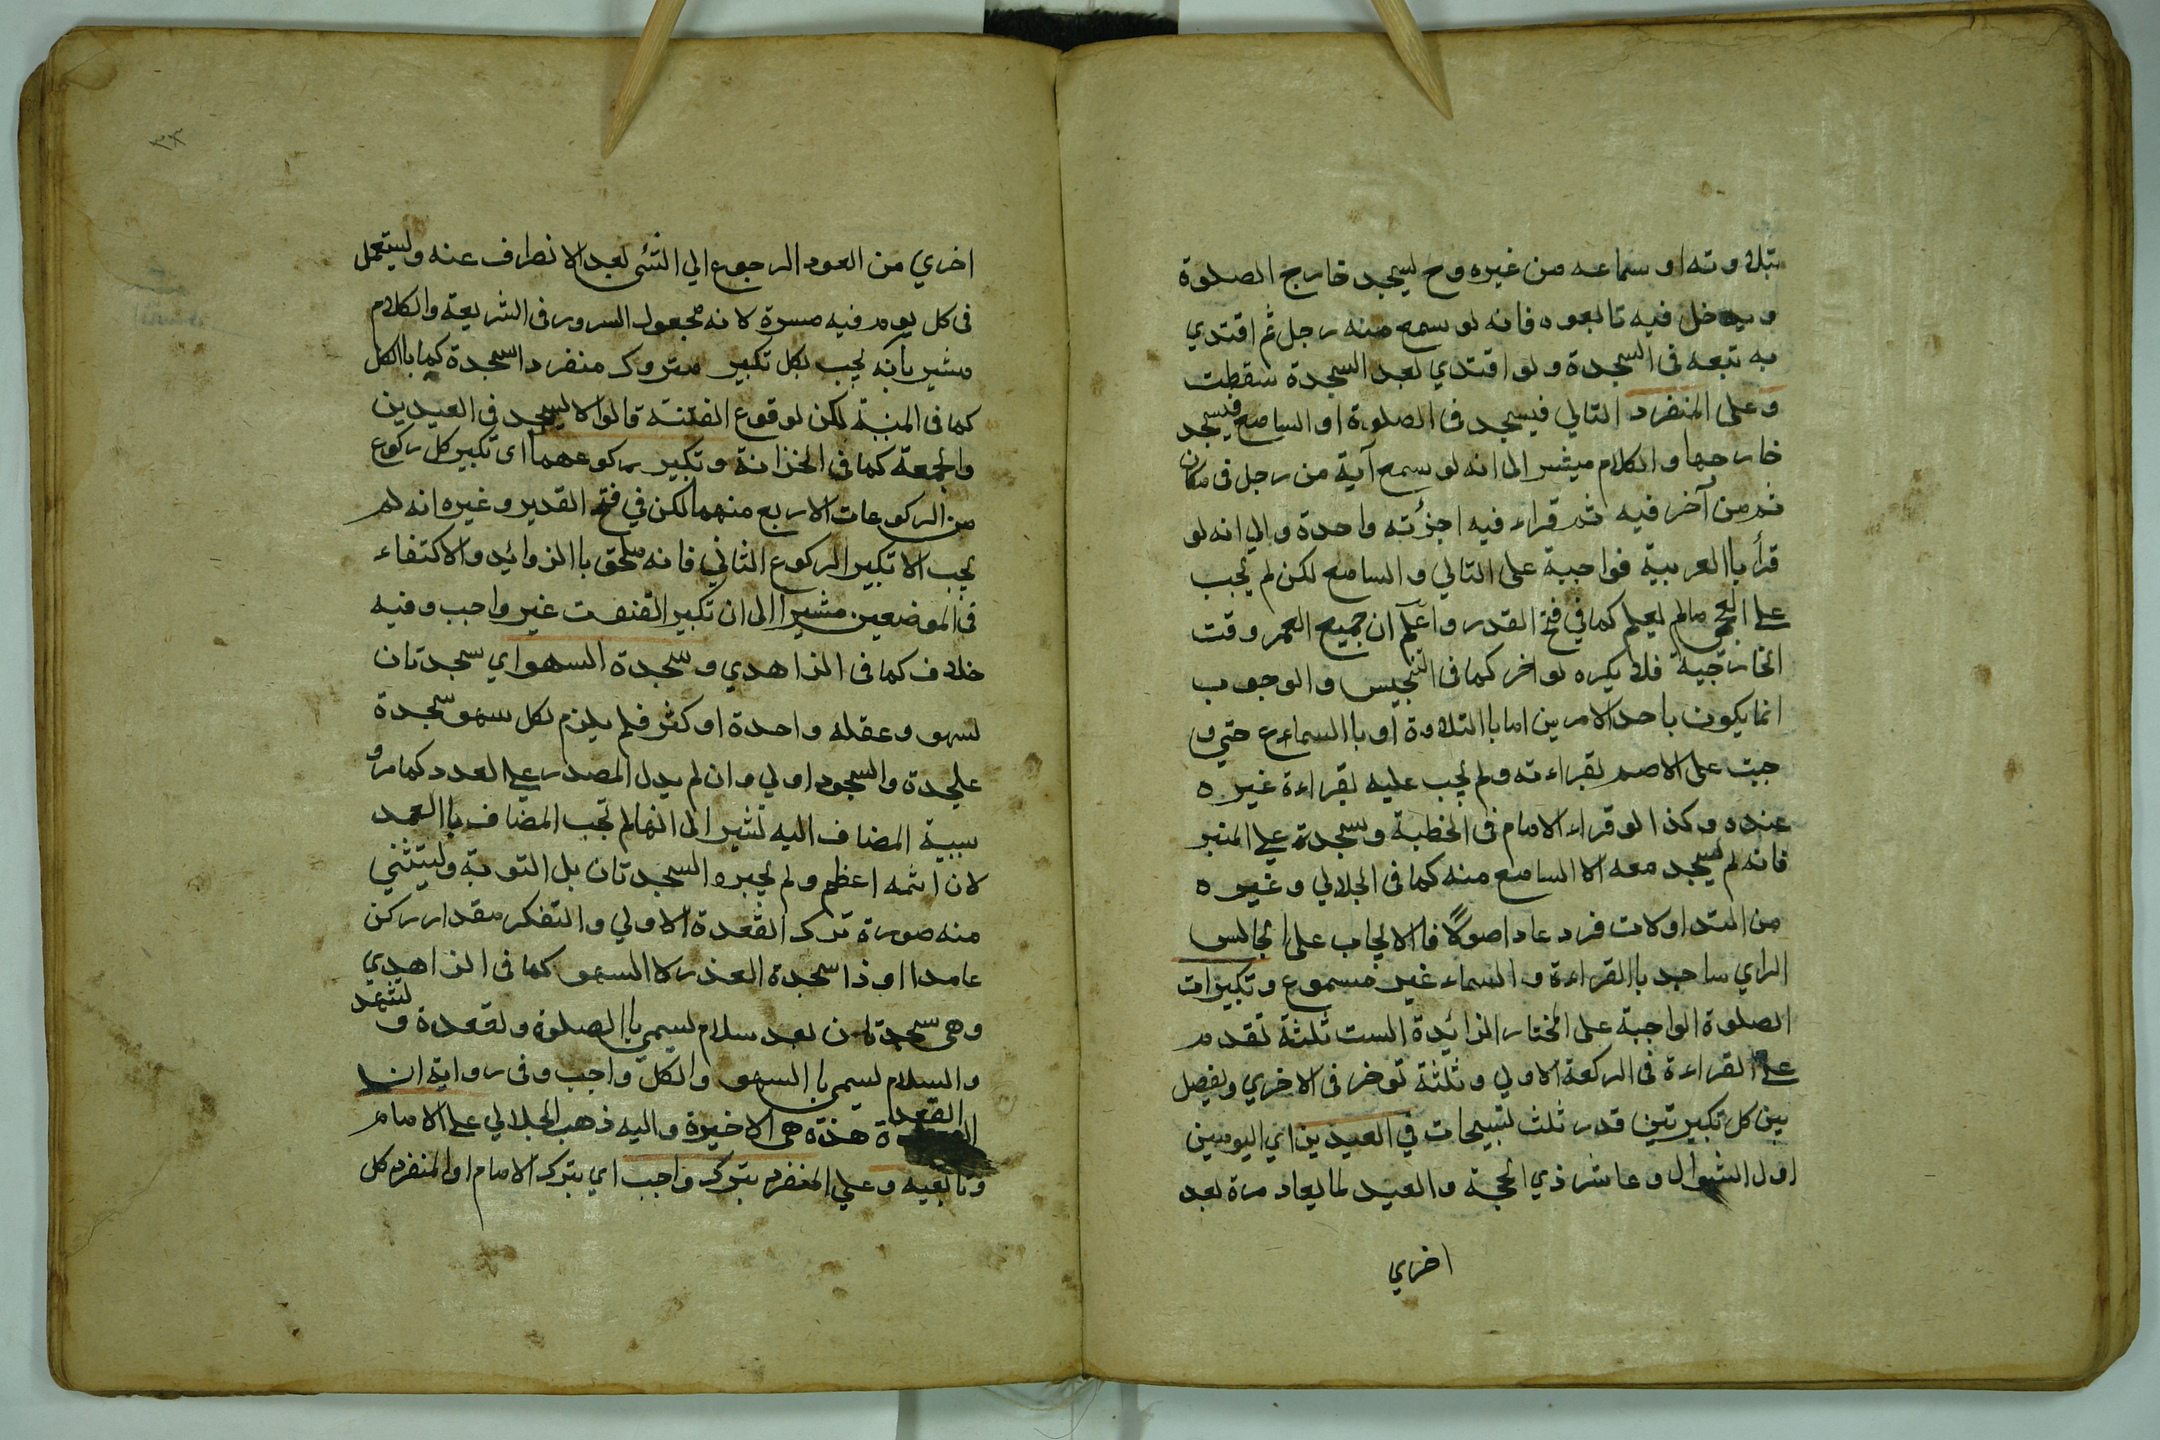 بتلاوته او سماعه من غيره وح يسجد خارج الصلوة
ويدخل فيه تا لعوده فانه لو سمع منه رجل ثم اقتدي
به تبعه فى السجدة ولو اقتدي بعد السجدة سقطت
وعلى المنفرد التالي فيسجد فى الصلوة او السامع فيسجد
خارجها والكلام ميشر الى انه لو سمع آية من رجل فى مكان
ثم من آخر فيه ثم قراء فيه اجزئته واحدة والي انه لو
قرأ باالعربية فواجبة على التالي و السامع لكن لم يجب
على العجمي مالم يعلم كما في فتح القدر واعلم ان جميع العمر وقت
الخارجية فلا يكره لو اخر كما فى التنجيس والوجوب
انما يكون باحد الامرين اما باالتلاوة او باالسماع حتي و
جبت على الاصم بقراءته ولم يجب عليه بقراءة غيره
عنده وكذا لو قراء الامام فى الخطبة وسجدة على المنبر
فانه لم يسجد معه الا السامع منه كما فى الجلالي وغيره
من المتداولات فرد عاد اصولًا فا لايجاب على الجالس
الراي ساجد باالقراءة و السماء غير مسموع وتكبيرات
الصلوة الواجبة على المختار الزائدة الست ثلثة تقدم
على القراءة فى الركعة الاولي وثلثة توخر فى الاخري ويفصل
بين كل تكبيرتين قدر ثلث تسبيحات في العيدين اي اليومين
اول الشوال وعاشر ذي الحجة والعيد لما يعاد مرة بعد
اخري
٣٣
اخري من العود الرجوع الي الشئ بعد الانصراف عنه ويستعمل
فى كل يوم فيه مسرة لانه مجعول السرور فى الشريعة والكلام
مشير بأنه يجب بكل تكبير متروك منفردا سجدة كما باالكل
كما فى المنية لكن لوقوع الفتنة قالوا لا يسجد فى العيدين
والجمعة كما فى الخزانة وتكبير ركوعهما اى تكبير كل ركوع
من الركوعات الاربع منهما لكن في فتح القدير وغيره انه لم
يجب الا تكبير الركوع الثاني فانه ملحق باالزوائد والاكتفاء
فى الموضعين مشير الى ان تكبير القنوت غير واجب وفيه
خلاف كما فى الزاهدي و سجدة السهو اي سجدتان
لسهو وعقله واحدة او كثر فلم يلزم لكل سهو سجدة
عليحدة والسجود اولي وان لم يدل المصدر على العدد كما مر و
سبية المضاف اليه تشير الى انها لم تجب المضاف باالعمد
لان اثمه اعظم ولم يجبره السجدتان بل التوبة ويستثني
منه صورة ترك القعدة الاولي والتفكر مقدار ركن
عامدا او ذا سجدة العذر لا السهو كما فى الزاهدي
وهى سجدتان بعد سلام يسمي باالصلوة ولقعدة و لتشهد
والسلام يسمي باالسهو والكل واجب وفى رواية ان
القعدة هذه هى الاخيرة واليه ذهب الجلالي على الامام
وتابعيه وعلي المنفرد بترك واجب اي بترك الامام او المنفرد كل